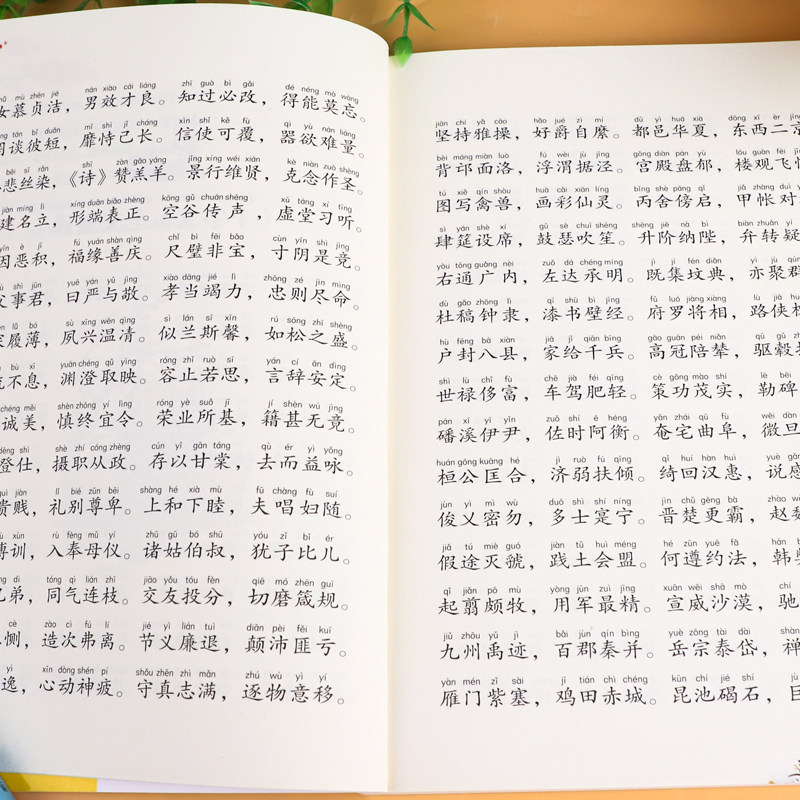 mù zhēn jié nán xiào cái liáng zhī guò bì gǎi dé néng mò wàng
女慕贞洁，男效才良。知过必改，得能莫忘。
tán bǐ duǎn mǐ shì jǐ cháng xìn shǐ kě fù qì yù nán liáng
罔谈彼短，靡恃己长。信使可覆，器欲难量。
bēi sī rǎn shī zàn gāo yáng jǐng xíng wéi xián kè niàn zuò shèng
悲丝染，《诗》赞羔羊。景行维贤，克念作圣。
jiàn míng lì xíng duān biǎo zhèng kōng gǔ chuán shēng xū táng xí tīng
建名立，形端表正。空谷传声，虚堂习听。
yīn è jī fú yuán shàn qìng chǐ bì fēi bǎo cùn yīn shì jìng
因恶积，福缘善庆。尺璧非宝，寸阴是竞。
fù shì jūn yuē yán yǔ jìng xiào dāng jié lì zhōng zé jìn mìng
父事君，曰严与敬。孝当竭力，忠则尽命。
lǚ bó sù xīng wēn qìng sì lán sī xīn rú sōng zhī shèng
履薄，夙兴温凊。似兰斯馨，如松之盛。
bù xī yuān chéng qǔ yìng róng zhǐ ruò sī yán cí ān dìng
流不息，渊澄取映。容止若思，言辞安定。
chéng měi shèn zhōng yí lìng róng yè suǒ jī jí shèn wú jìng
诚美，慎终宜令。荣业所基，籍甚无竞。
dēng shì shè zhí cóng zhèng cún yǐ gān táng qù ér yì yǒng
登仕，摄职从政。存以甘棠，去而益咏。
guì jiàn lǐ bié zūn bēi shàng hé xià mù fū chàng fù suí
贵贱，礼别尊卑。上和下睦，夫唱妇随。
xùn rù fèng mǔ yí zhū gū bó shū yóu zǐ bǐ ér
傅训，入奉母仪。诸姑伯叔，犹子比儿。
dì tóng qì lián zhī jiāo yǒu tóu fèn qiē mó zhēn guī
兄弟，同气连枝。交友投分，切磨箴规。
cè zào cì fú lí jié yì lián tuì diān pèi fěi kuī
恻，造次弗离。节义廉退，颠沛匪亏。
yì xīn dòng shén pí shǒu zhēn zhì mǎn zhú wù yì yí
逸，心动神疲。守真志满，逐物意移。
jiān chí yǎ cāo hǎo jué zì mí dū yì huá xià dōng xī èr jīng
坚持雅操，好爵自縻。都邑华夏，东西二京
bèi máng miàn luò fú wèi jù jīng gōng diàn pán yù lóu guàn fēi
背邙面洛，浮渭据泾。宫殿盘郁，楼观飞
tú xiě qín shòu huà cǎi xiān líng bǐng shè páng qǐ jiǎ zhàng duì
图写禽兽，画彩仙灵。丙舍傍启，甲帐对
sì yán shè xí gǔ sè chuī shēng shēng jiē nà bì biàn zhuǎn yí
肆筵设席，鼓瑟吹笙。升阶纳陛，弁转疑
yòu tōng guǎng nèi zuǒ dá chéng míng jì jí fén diǎn yì jù qún
右通广内，左达承明。既集坟典，亦聚群
dù gǎo zhōng lì qī shū bì jīng fǔ luó jiàng xiàng lù xiá
杜稿钟隶，漆书壁经。府罗将相，路侠
hù fēng bā xiàn jiā jǐ qiān bīng gāo guān péi niǎn qū gǔ
户封八县，家给千兵。高冠陪辇，驱毂
shì lù chǐ fù chē jià féi qīng cè gōng mào shí lè bēi
世禄侈富，车驾肥轻。策功茂实，勒碑
pán xī yī yǐn zuǒ shí ē héng yǎn zhái qū fù wēi dàn
磻溪伊尹，佐时阿衡。奄宅曲阜，微旦
huán gōng kuāng hé jì ruò fú qīng qǐ huí hàn huì yuè gǎn
桓公匡合，济弱扶倾。绮回汉惠，说感
jùn yì mì wù duō shì shí níng jìn chǔ gēng bà zhào wèi
俊乂密勿，多士寔宁。晋楚更霸，赵魏
jiǎ tú miè guó jiàn tǔ huì méng hé zūn yuē fǎ hán
假途灭虢，践土会盟。何遵约法，韩
qǐ jiǎn pō mù yòng jūn zuì jīng xuān wēi shā mò chí
起翦颇牧，用军最精。宣威沙漠，驰
jiǔ zhōu yǔ jì bǎi jùn qín bìng yuè zōng tài dài
九州禹迹，百郡秦并。岳宗泰岱，禅
yàn mén zǐ sài jī tián chì chéng kūn chí jié shí
雁门紫塞，鸡田赤城。昆池碣石，